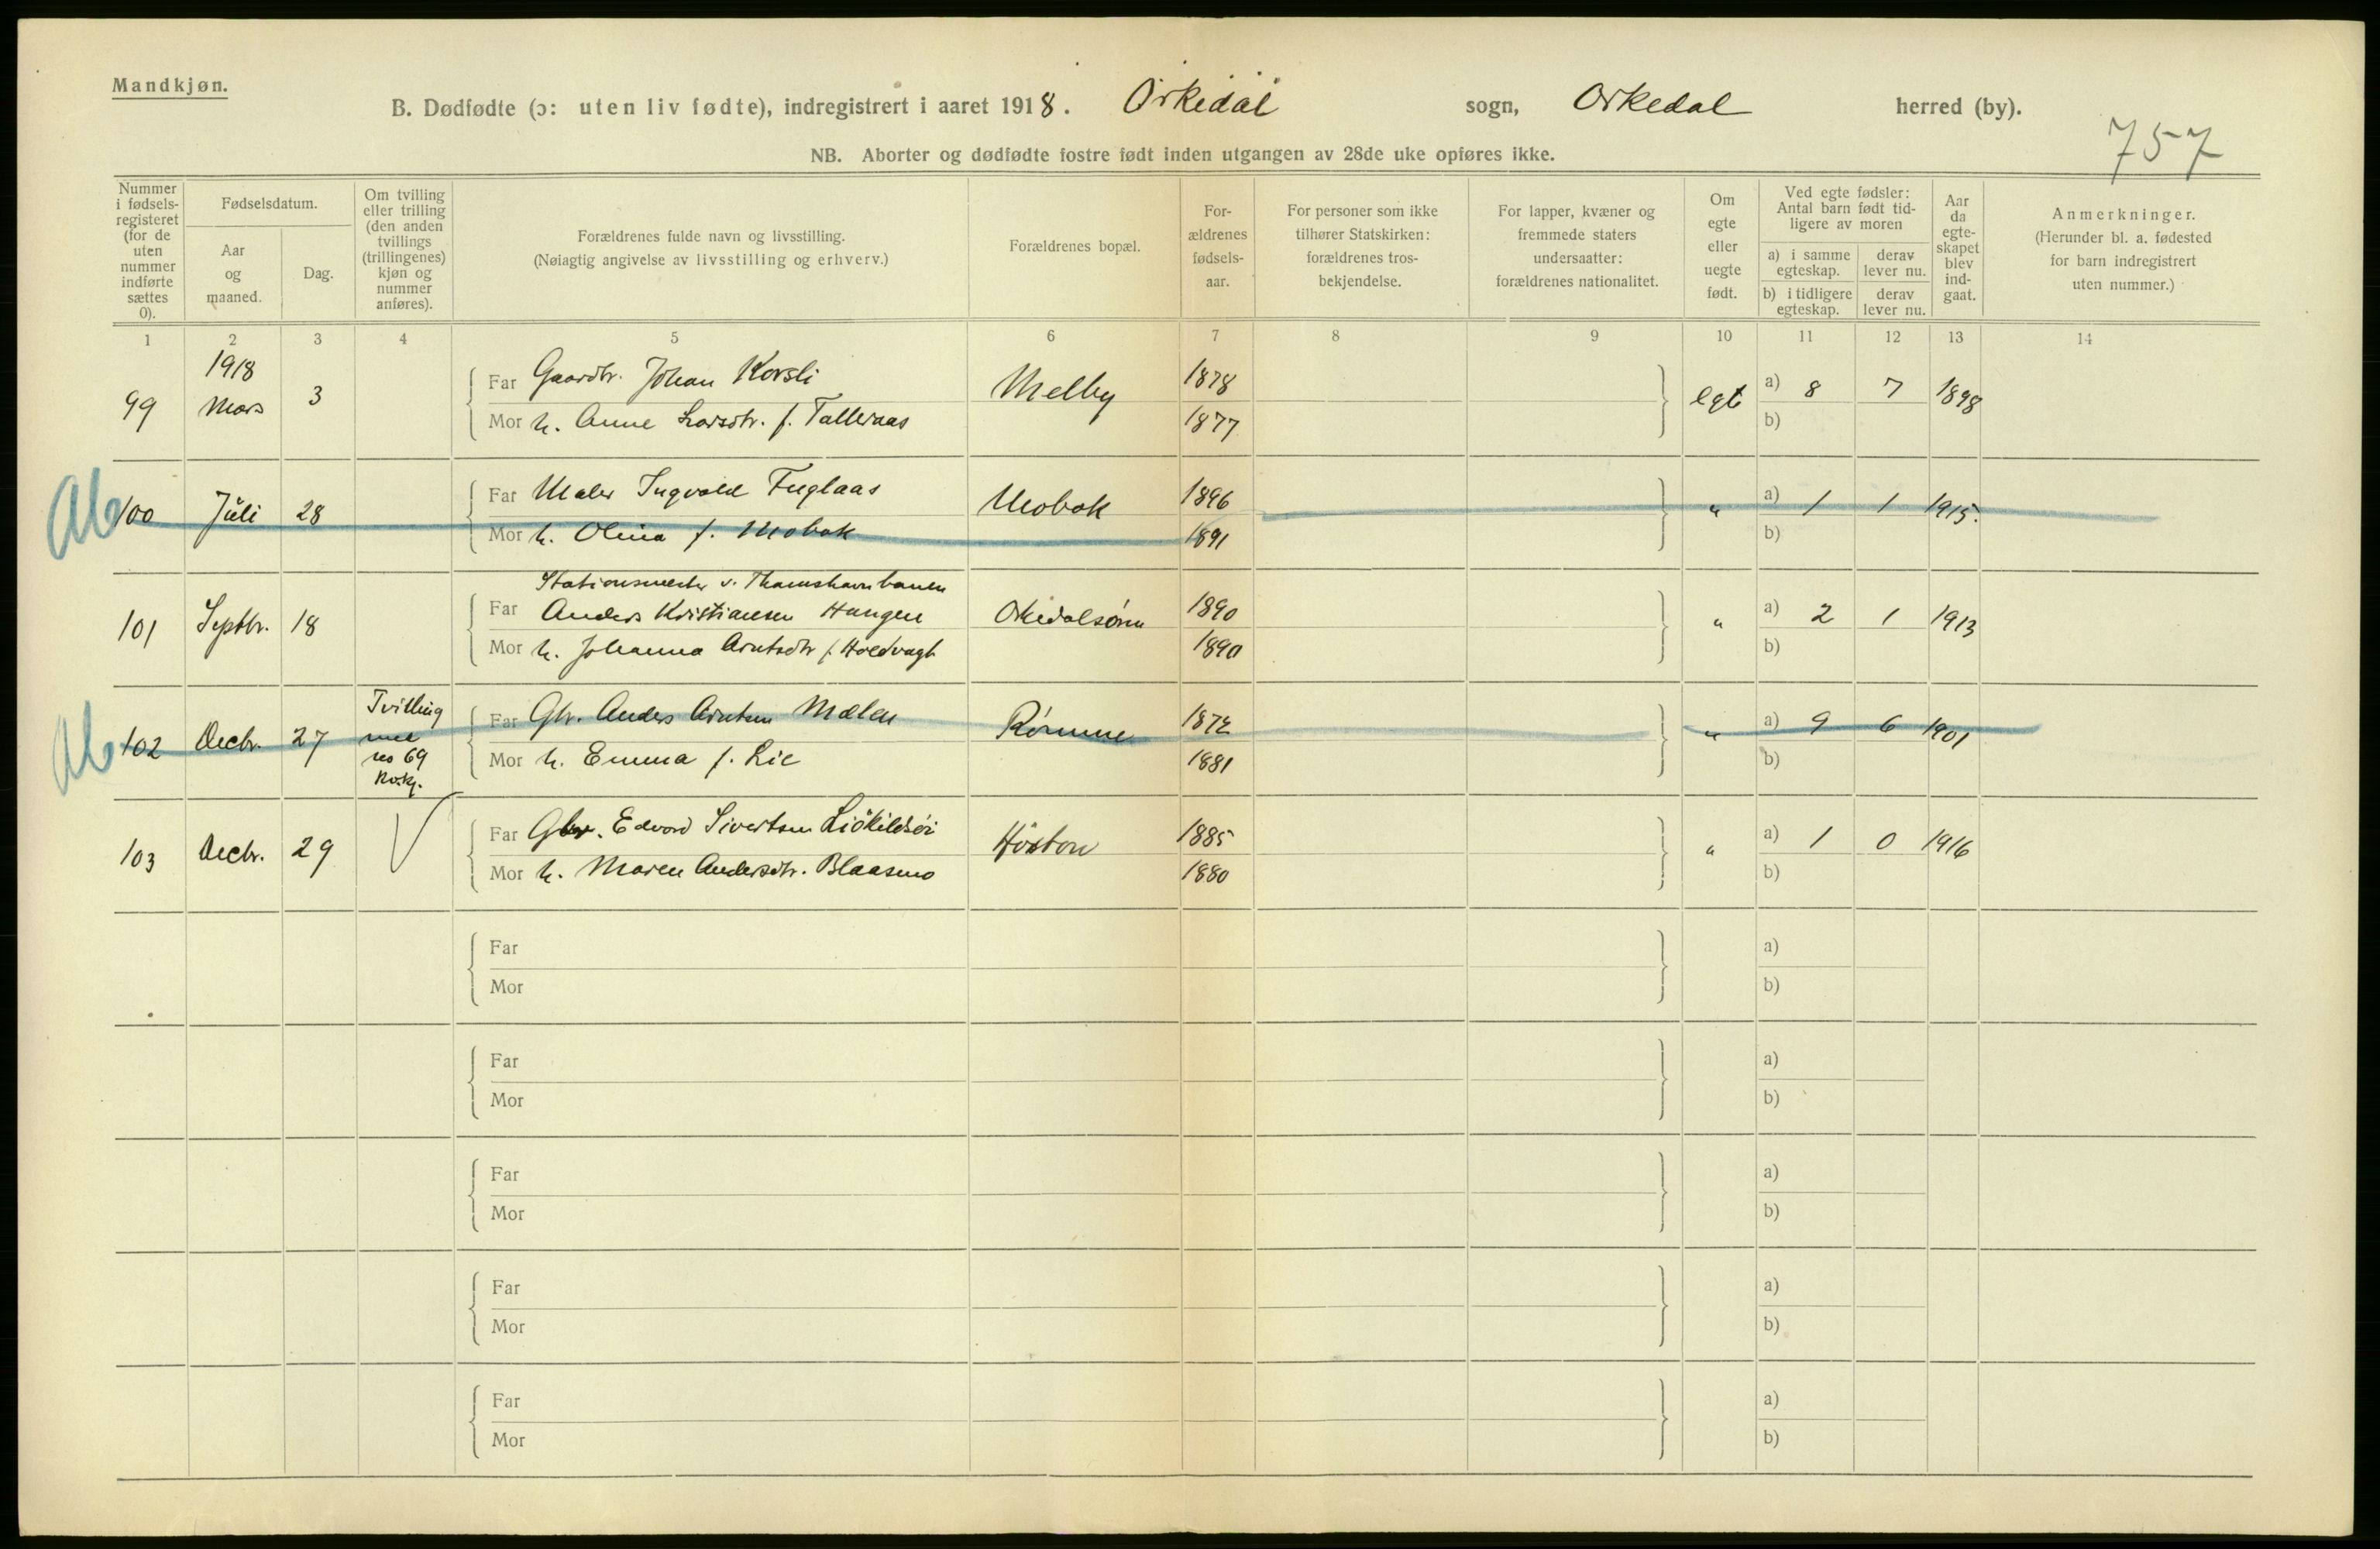 Mandkjøn.
B. Dødfødte (ɔ: uten liv fødte), indregistrert i aaret 1918. Orkedal sogn, Orkedal herred (by).
757
NB. Aborter og dødfødte fostre født inden utgangen av 28de uke opføres ikke.
Nummer
i fødsels-
registeret
(for de
uten
nummer
indførte
sættes
0).
Fødselsdatum.
Aar
og
maaned.
Dag.
Om tvilling
eller trilling
(den anden
tvillings
(trillingenes)
kjøn og
nummer
anføres).
Forældrenes fulde navn og livsstilling.
(Nøiagtig angivelse av livsstilling og erhverv.)
Forældrenes bopæl.
For-
ældrenes
fødsels-
aar.
For personer som ikke
tilhører Statskirken:
forældrenes tros-
bekjendelse.
For lapper, kvæner og
fremmede staters
undersaatter:
forældrenes nationalitet.
Om
egte
eller
uegte
født.
Ved egte fødsler:
Antal barn født tid-
ligere av moren
a) i samme
egteskap.
derav
lever nu.
b) i tidligere
egteskap.
derav
lever nu.
Aar
da
egte-
skapet
blev
ind-
gaat.
Anmerkninger.
(Herunder bl. a. fødested
for barn indregistrert
uten nummer.)
1 2 3 4 5 6 7 8 9 10 11 12 13 14
99 1918 Mars 3
Far Gaardbr. Johan Korsli Melby 1878 egte a) 8 7 1898
Mor h. Anne Larsdtr. f. Talleraas 1877 b)
Ab
100 Juli 28
Far Maler Ingvald Fuglaas Mobak 1896 " a) 1 1 1915.
Mor h. Olina f. Mobak 1891 b)
Stationsmester v. Thamshavnbanen
101 Septbr. 18
Far Anders Kristiansen Haugen Orkedalsøren 1890 " a) 2 1 1913
Mor h. Johanna Arntsdtr f. Hoedvagt 1890 b)
Ab
102 Decbr. 27
Tvilling
med
no 69
kv.kj.
Far Gbr. Anders Arntsen Mælen Rømme 1872 " a) 9 6 1901
Mor h. Emma f. Lie 1881 b)
103 Decbr. 29
Far Gbr. Edvard Sivertsen Høston 1885 " a) 1 0 1916
Mor h. Maren Andersdtr. Blaasmo 1880 b)
Far a)
Mor b)
Far a)
Mor b)
Far a)
Mor b)
Far a)
Mor b)
Far a)
Mor b)